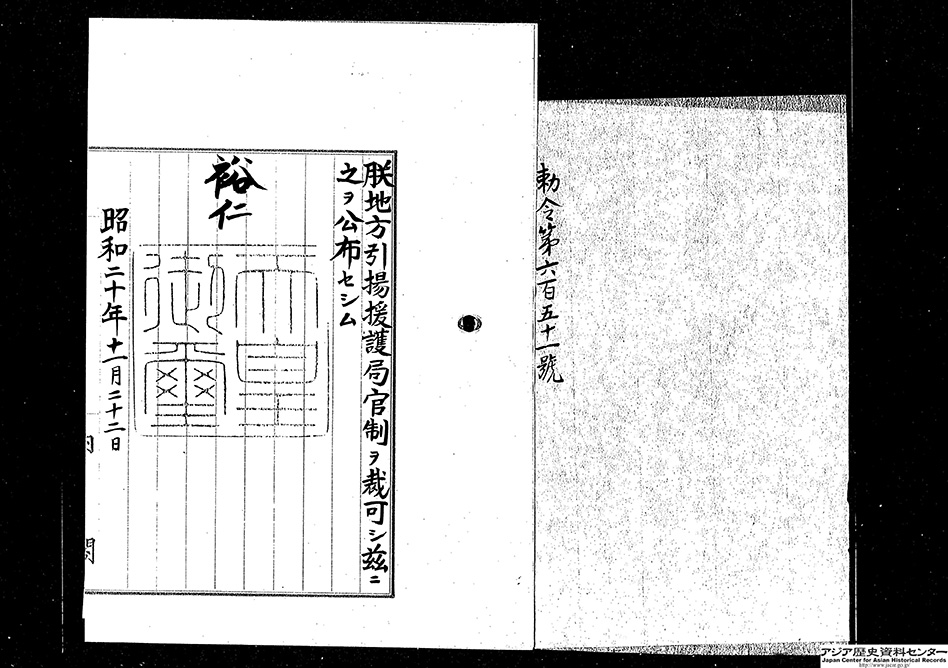 勅令第六百五十一號
朕地方引揚援護局官制ヲ裁可シ茲ニ
之ヲ公布セシム
裕仁
天皇
御璽
昭和二十年十一月二十二日
内閣
アジア歴史資料センター
Japan Center for Asian Historical Records
http://www.jacar.go.jp/